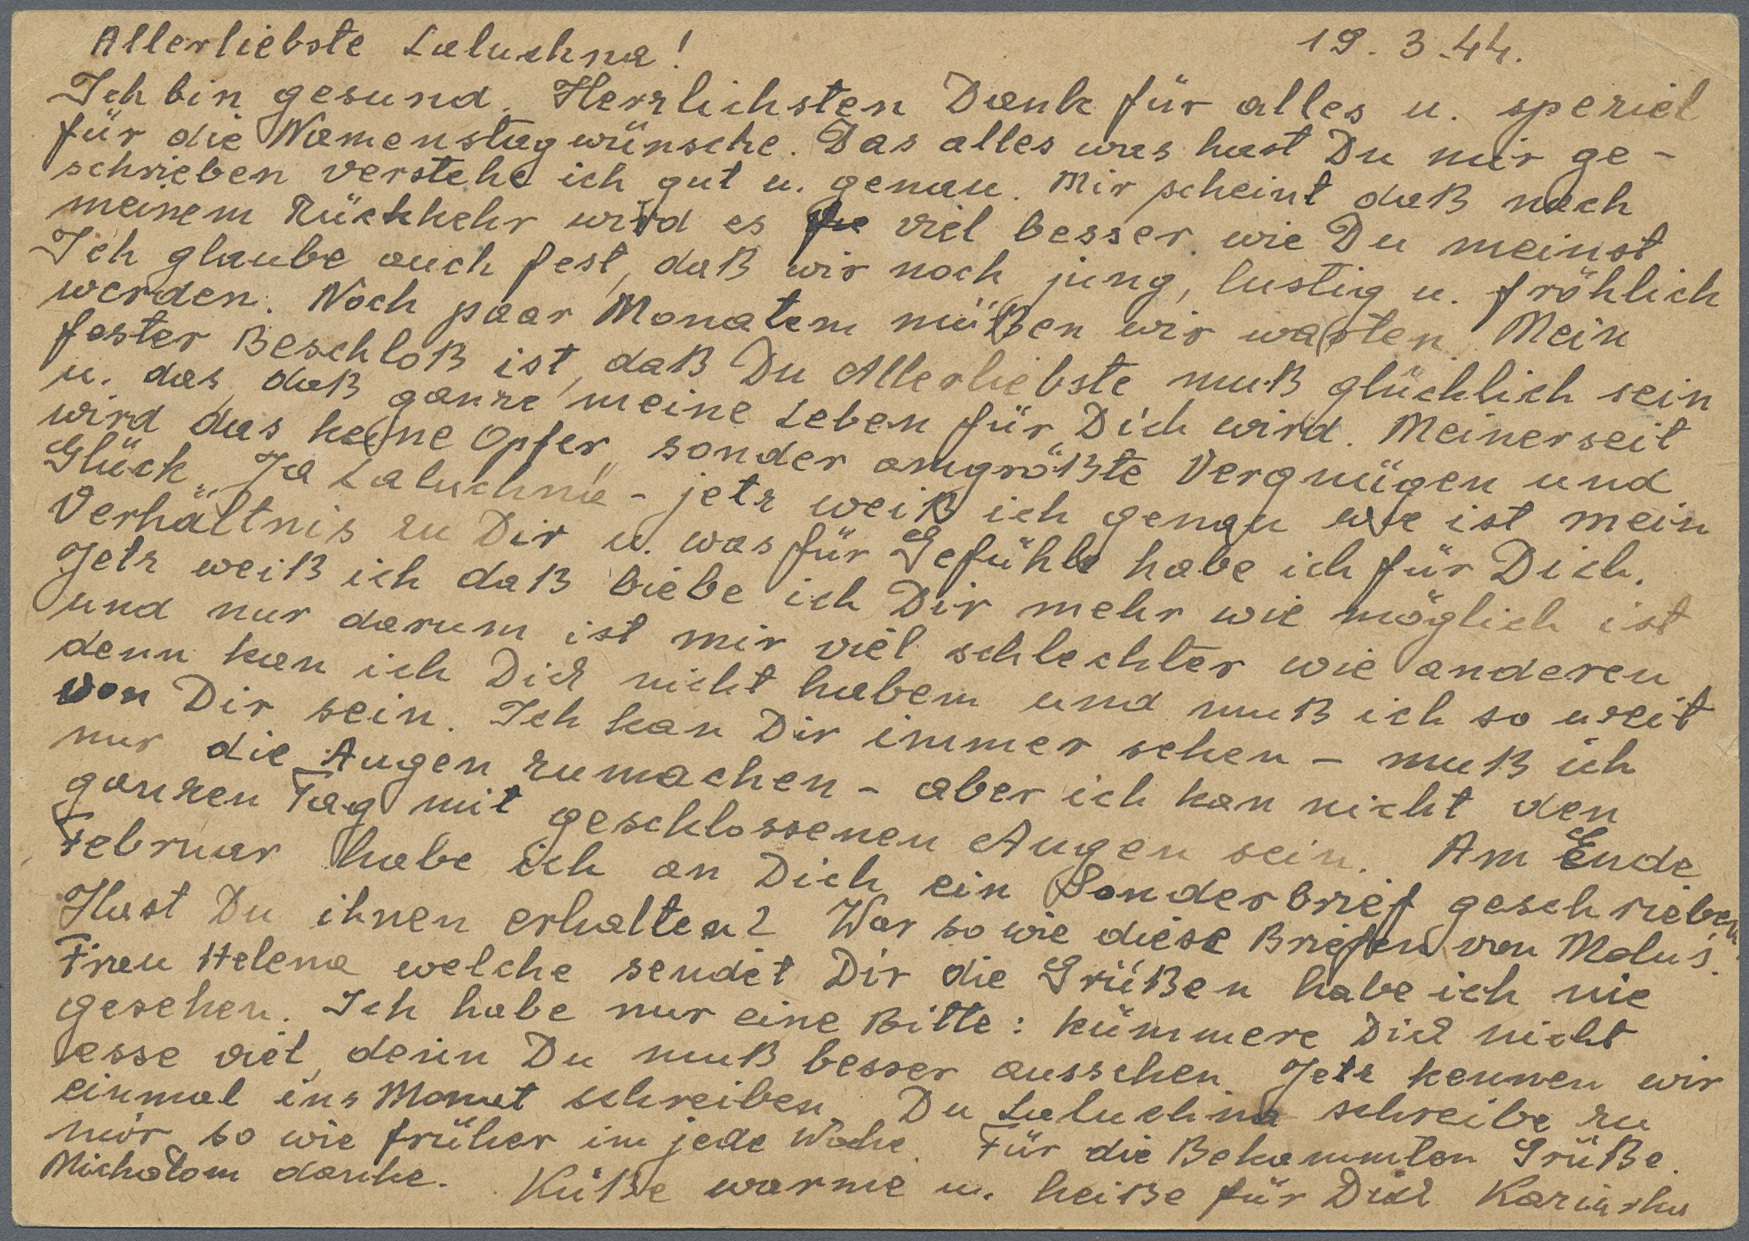 Allerliebste Laluchna! 19.3.44.
Ich bin gesund. Herzlichsten Dank für alles u. speziel
für die Namenstagwünsche. Das alles was hast Du mir ge-
schrieben verstehe ich gut u. genau. Mir scheint daß nach
meinem Rückkehr wird es viel besser wie Du meinst
Ich glaube auch fest, daß wir noch jung, lustig u. fröhlich
werden. Noch paar Monatem müßen wir warten. Mein
fester Beschloß ist, daß Du Allerliebste muß glücklich sein
u. das, daß ganze meine Leben für Dich wird. Meinerseit
wird das keine "Opfer" sonder amgrößte Vergnügen und
Glück. Ja Laluchna - jetz weiß ich genau wie ist mein
Verhältnis zu Dir u. was für Gefühle habe ich für Dich.
Jetz weiß ich daß liebe ich Dir mehr wie möglich ist
und nur darum ist mir viel schlechter wie anderen
denn kan ich Dich nicht habem und muß ich so weit
von Dir sein. Ich kan Dir immer sehen - muß ich
nur die Augen zumachen - aber ich kan nicht den
ganzen Tag mit geschlossenen Augen sein. Am Ende
Februar habe ich an Dich ein Sonderbrief geschrieben
Hast Du ihnen erhalten? War so wie diese Briefen von Malus.
Frau Helena welche sendet Dir die Grüßen habe ich nie
gesehen. Ich habe nur eine Bitte: kümmere Dich nicht
esse viel, denn Du muß besser aussehen. Jetz kennen wir
einmal ins Monat schreiben. Du Laluchna schreibe zu
mir so wie früher im jede Woche. Für die Bekannten Grüße.
Michałom danke. Küße warme u. heiße für Dich Kaziu